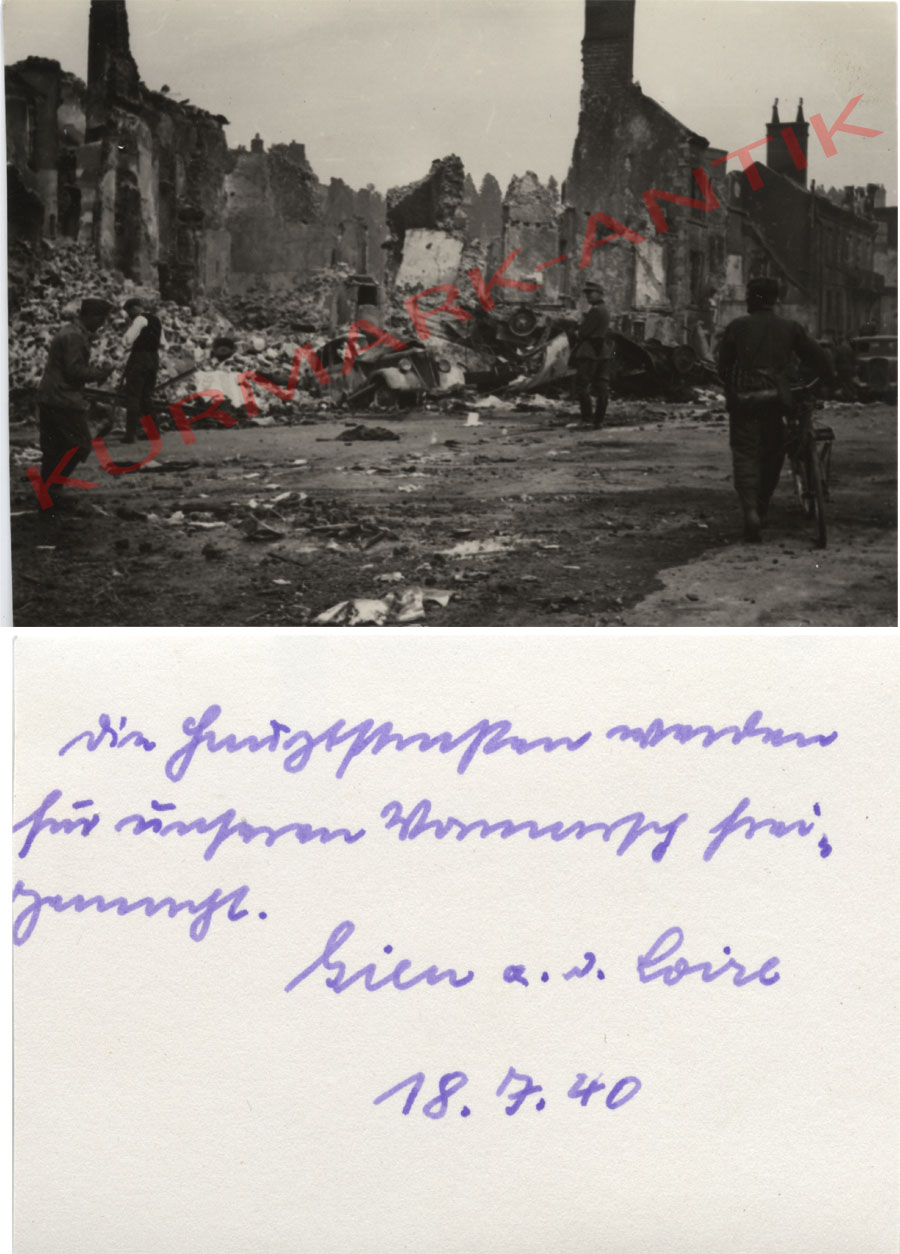 KURMARK-ANTIK
Die Hauptstraßen werden
für unseren Vormarsch frei-
gemacht.
Gien a. d. Loire
18.7.40